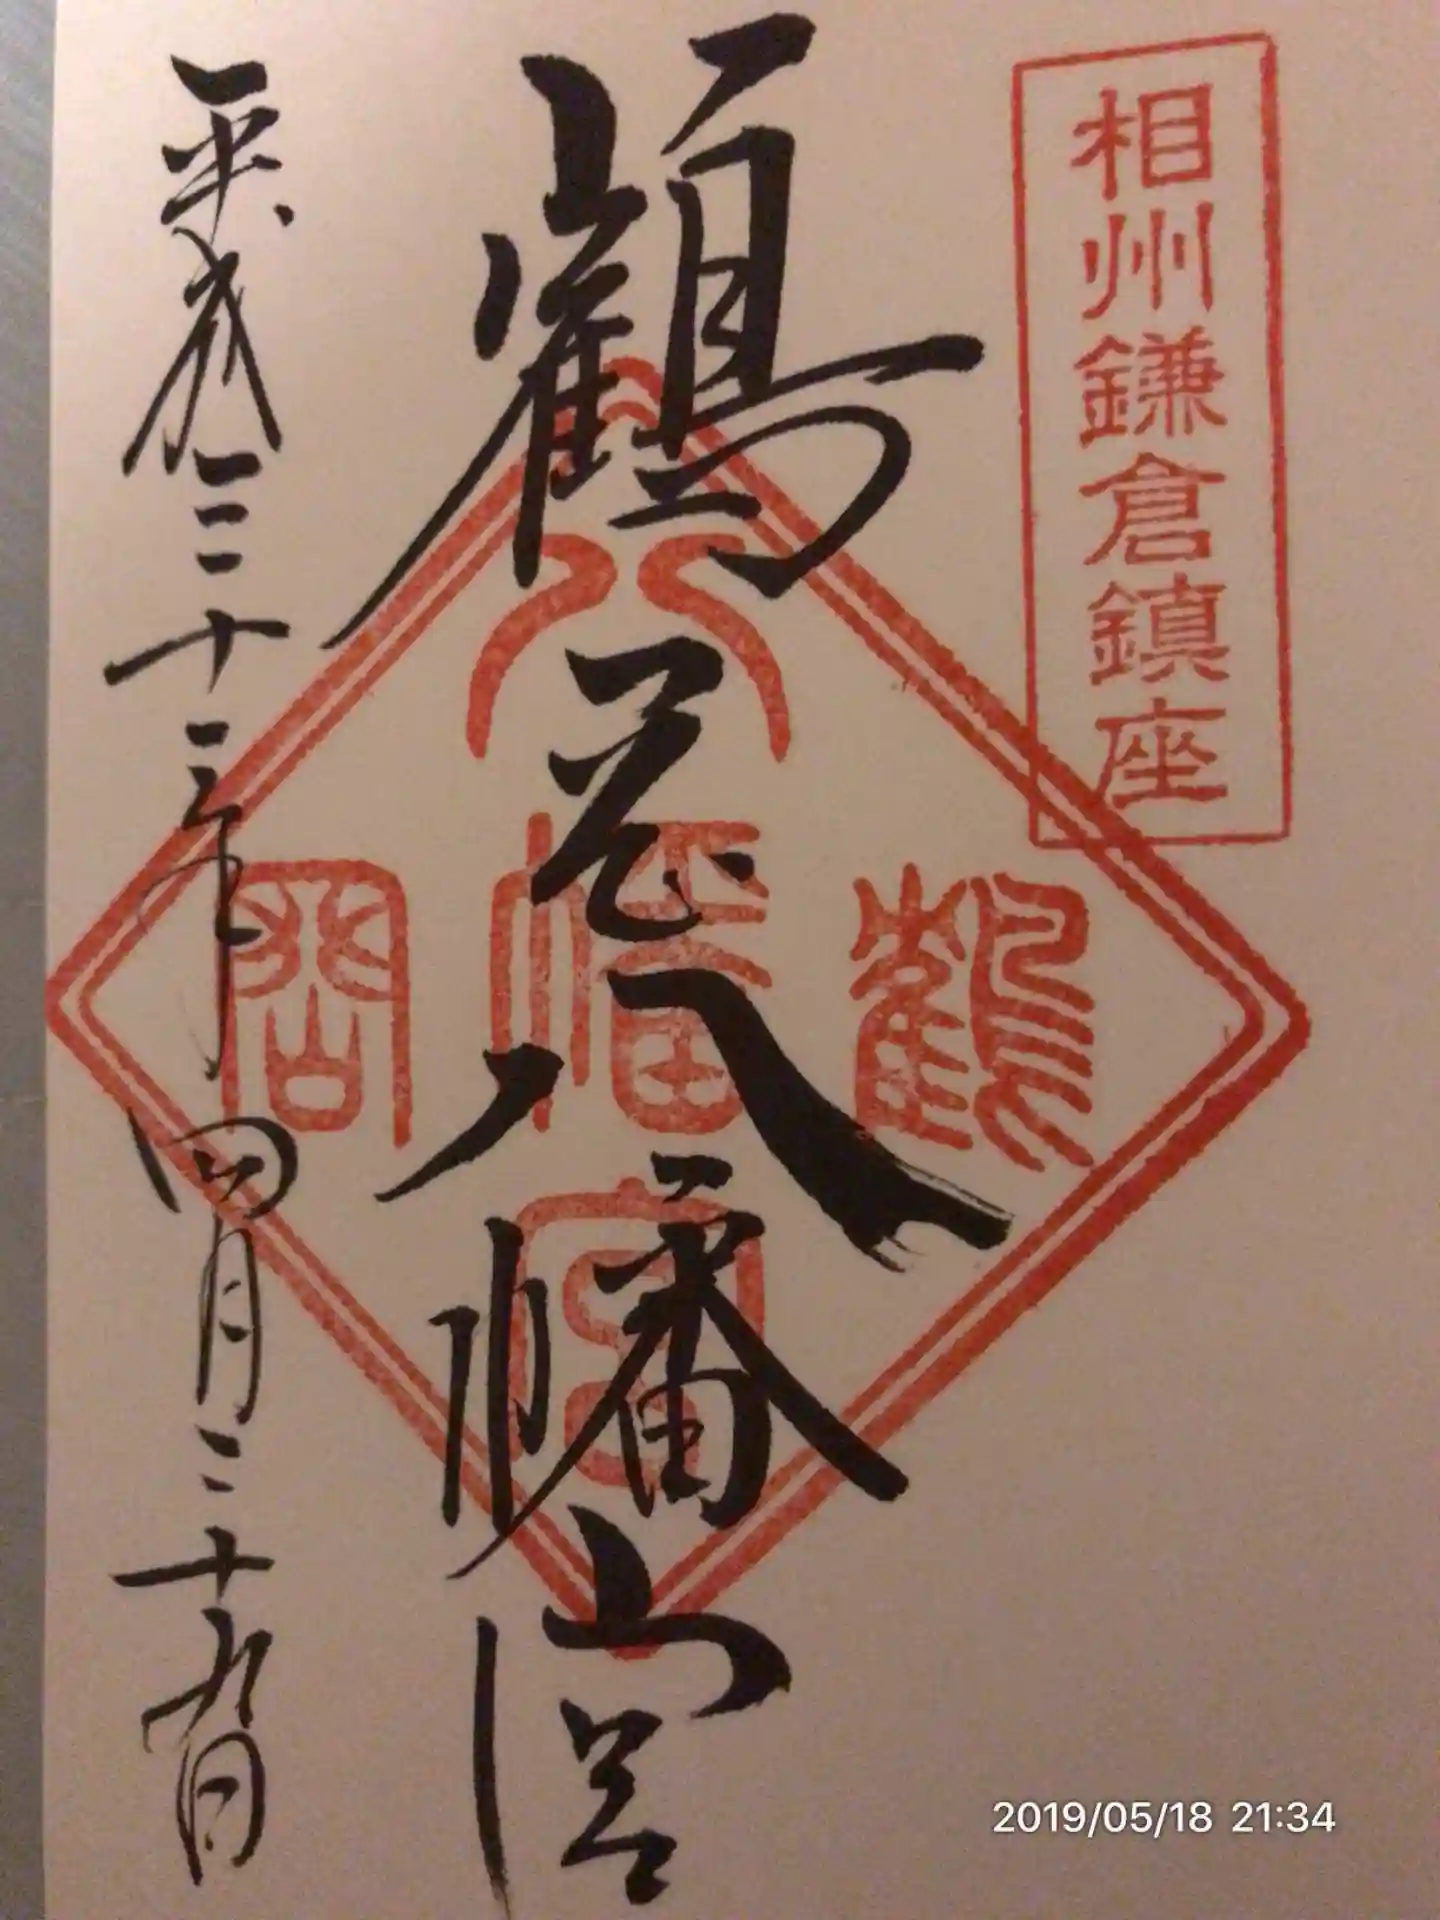 相州鎌倉鎮座
鶴岡八幡宮
鶴
八幡宮
岡
平成三十一年四月二十九日
2019/05/18 21:34